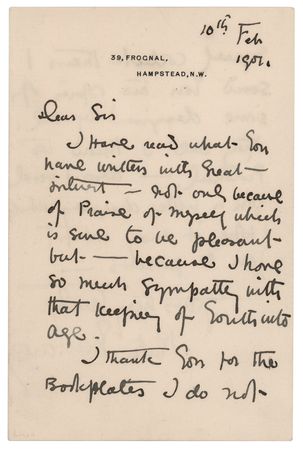 10th Feb
1901.
39, FROGNAL,
HAMPSTEAD, N.W.
Dear Sir
I have read what you
have written with great
interest — not only because
of Praise of myself which
is sure to be pleasant
but — because I have
so much sympathy with
that keeping of Youth into
age.
I thank you for the
Bookplates I do not